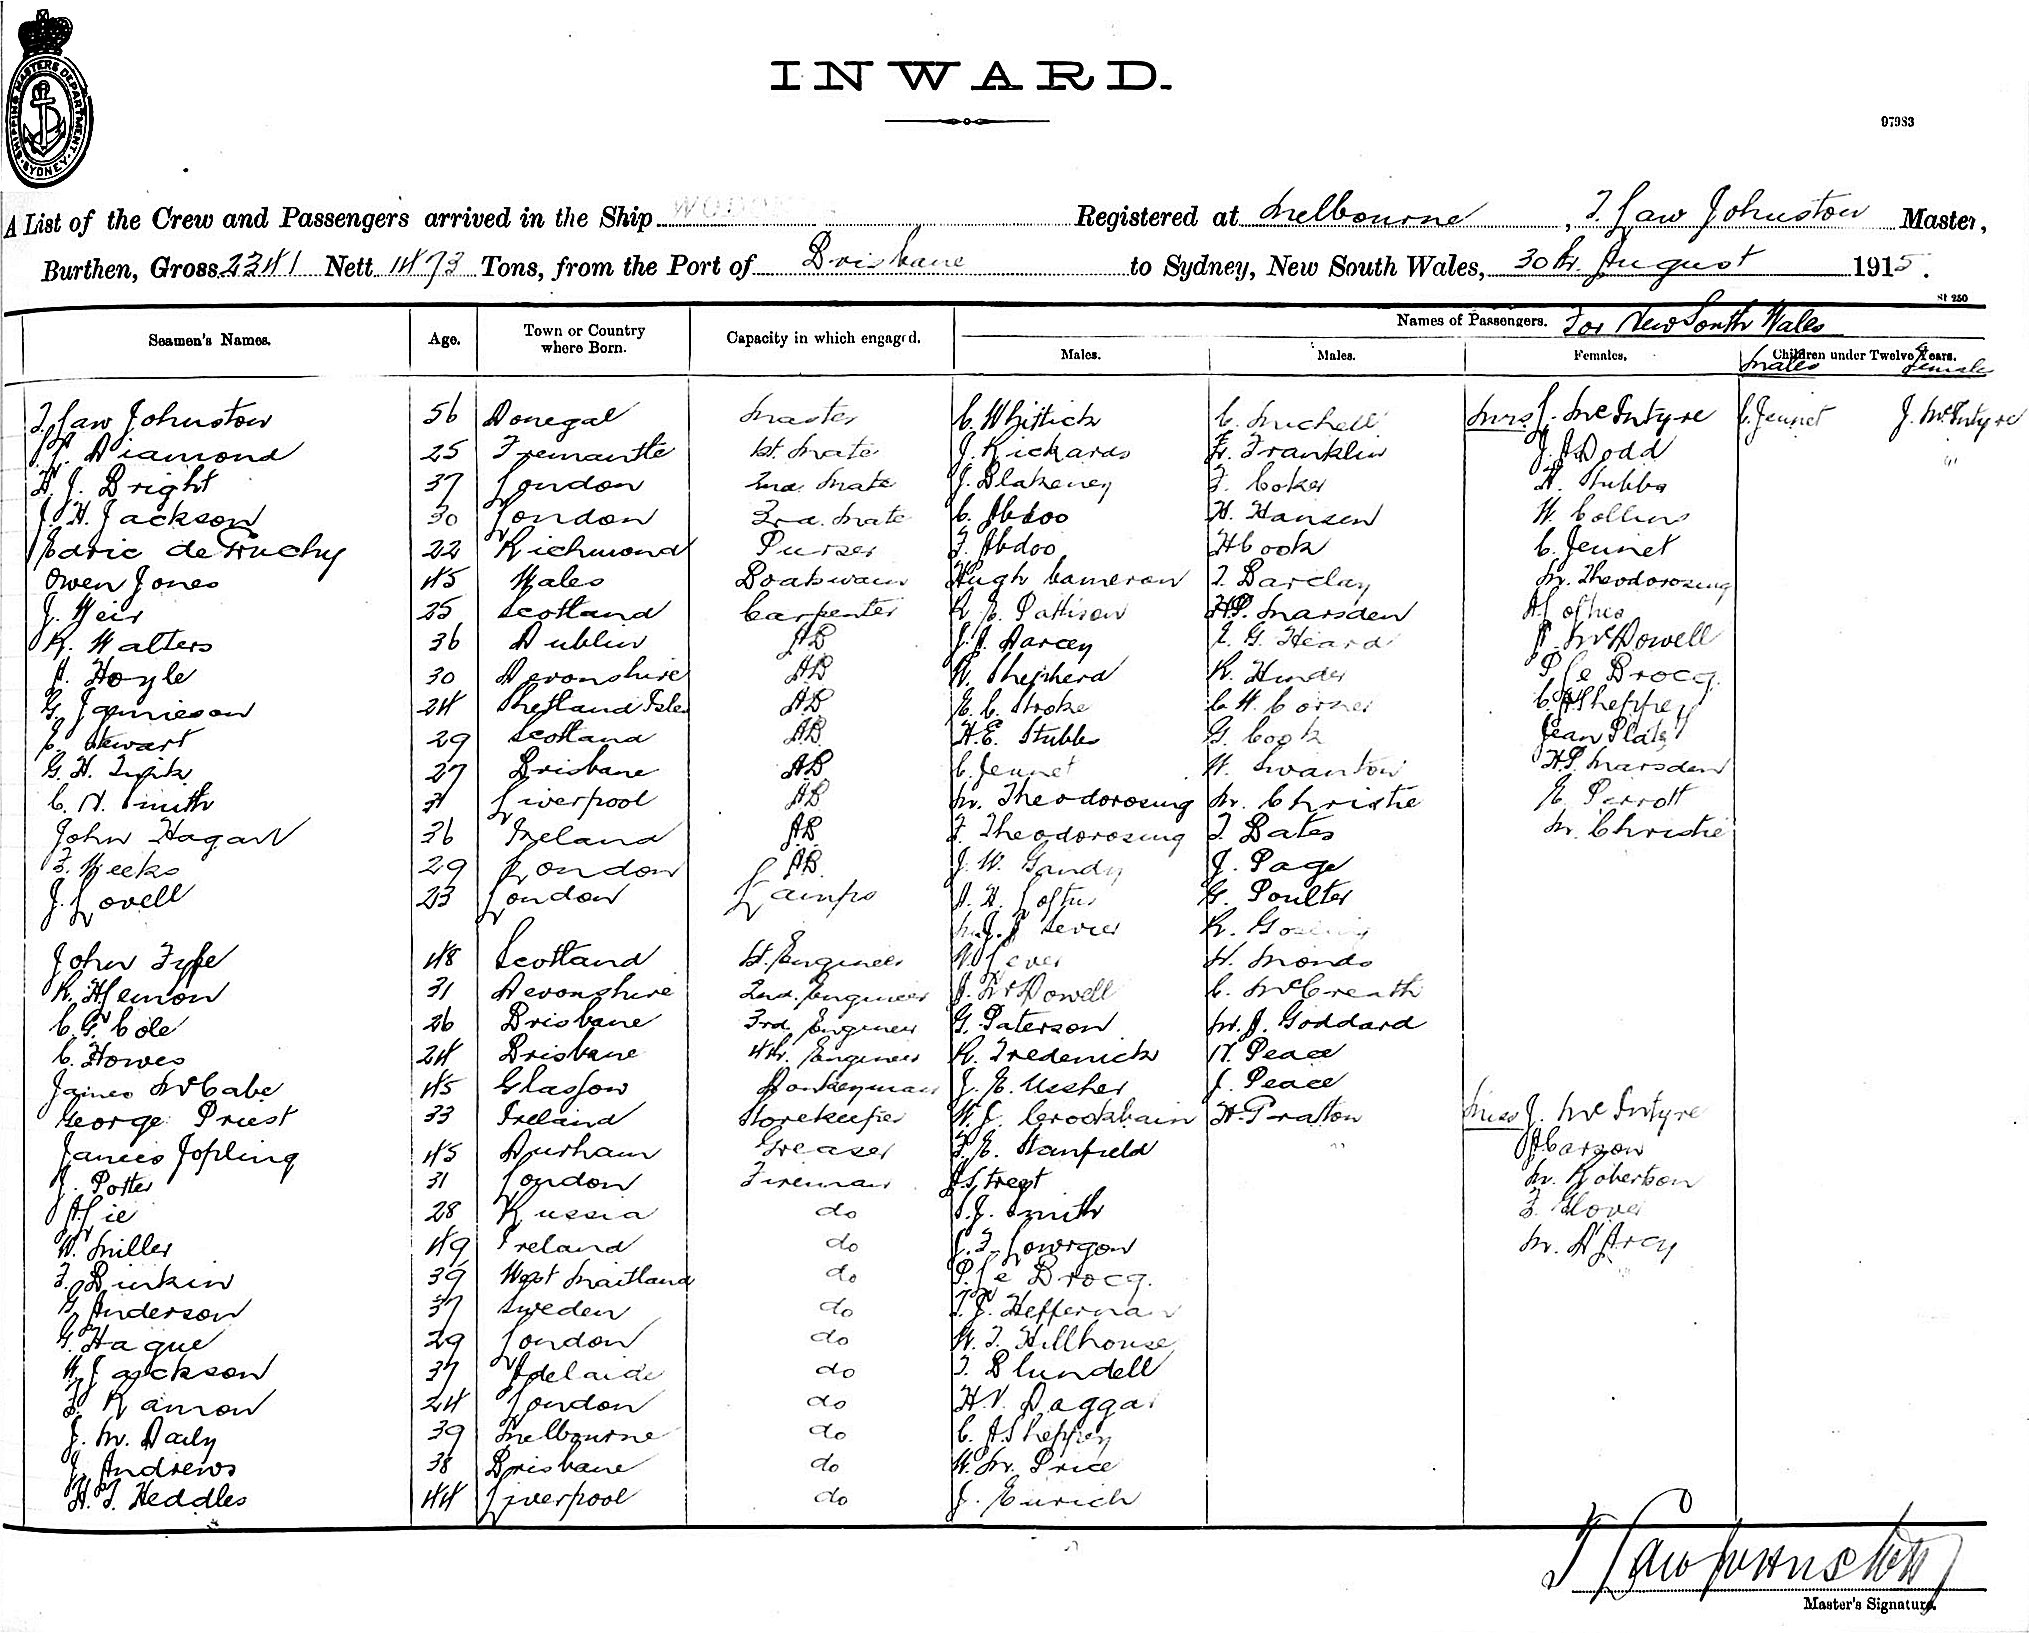 INWARD.
07983
SHIPPING MASTERS DEPARTMENT SYDNEY
A List of the Crew and Passengers arrived in the Ship Registered at Melbourne, T. Law Johnston Master,
Burthen, Gross 2341 Nett 1473 Tons, from the Port of Brisbane to Sydney, New South Wales, 30th. August 1915.
St 250
Seamen's Names. Age. Town or Country where Born. Capacity in which engaged. Names of Passengers. For New South Wales
Males. Males. Females. Children under Twelve Years.
Males Female
T. Law Johnston 56 Donegal Master C. Whittick C. Michell Mrs J. McIntyre C. Jennet J. McIntyre
Diamond 25 Fremantle 1st. Mate J. Rickards F. Franklin J. A Dodd
H. J. Bright 37 London 2nd. Mate J. Blakeney F. Coker H. Stubbs
J. H. Jackson 30 London 3rd. Mate C. Abdoo H. Hansen W. Collins
Edric de Gruchy 22 Richmond Purser F. Abdoo H Cook C. Jennet
Owen Jones 45 Wales Boatswain Hugh Cameron T. Barclay M. Theodorosing
J. Weir 25 Scotland Carpenter R. E. Pattison H.P. Marsden A Loftus
R. Walters 36 Dublin AB J. A. Darcey G. Heard A. McDowell
A. Hoyle 30 Devonshire AB W. Shepherd R. Hunder P. Le Brocq.
G. Jamieson 24 Shetland Isles AB E. C. Stroke C. H. Corner C. A Sheppey
C. Stewart 29 Scotland AB. H. E. Stubbs G. Cook Jean Platy
G. H. 27 Brisbane AB C. Jennet W. Swanton H.P. Marsden
C. N. Smith 31 Liverpool AB M. Theodorosing M. Christie E. Perrott
John Hagart 36 Ireland AB. F. Theodorosing T. Bates M. Christie
F. Weeks 29 London AB. J. W. Gandy J. Page
J. Lovell 23 London Lamps A. H. Loftus G. Poulter
Sevier R.
John Fyfe 48 Scotland 1st. Engineer Lever H. Monds
R. H Lemon 31 Devonshire 2nd. Engineer J. McDowell C. McCreath
C. G. Cole 26 Brisbane 3rd. Engineer G. Paterson M. J. Goddard
C. Howes 24 Brisbane 4th. Engineer R. Fredenick N. Peace
James McCabe 45 Glasgow Donkeyman J. E. Ussher J. Peace
George Priest 33 Ireland Storekeeper W. J. Crookbain H. Praton Miss J. McIntyre
James Jopling 45 Durham Greaser F. E. Stanfield A Carson
J. Potter 31 London Fireman A Street M. Robertson
A Lie 28 Russia do S. J. Smith F. Glover
W. Miller 49 Ireland do J. F. Lowrgon M. D'Arcy
F. Birkin 39 West Maitland do P. Le Brocq.
G. Anderson 37 Sweden do T. J. Heffernan
G. Hague 29 London do W. T. Hillhouse
W. Jackson 37 Adelaide do T. Blundell
F. Ramon 24 London do H. V. Daggar
J. M. Daily 39 Melbourne do C. A Sheppey
J. Andrews 38 Brisbane do W. M. Price
H. T. Heddles 44 Liverpool do J. Eurich
T Law Johnston
Master's Signature.